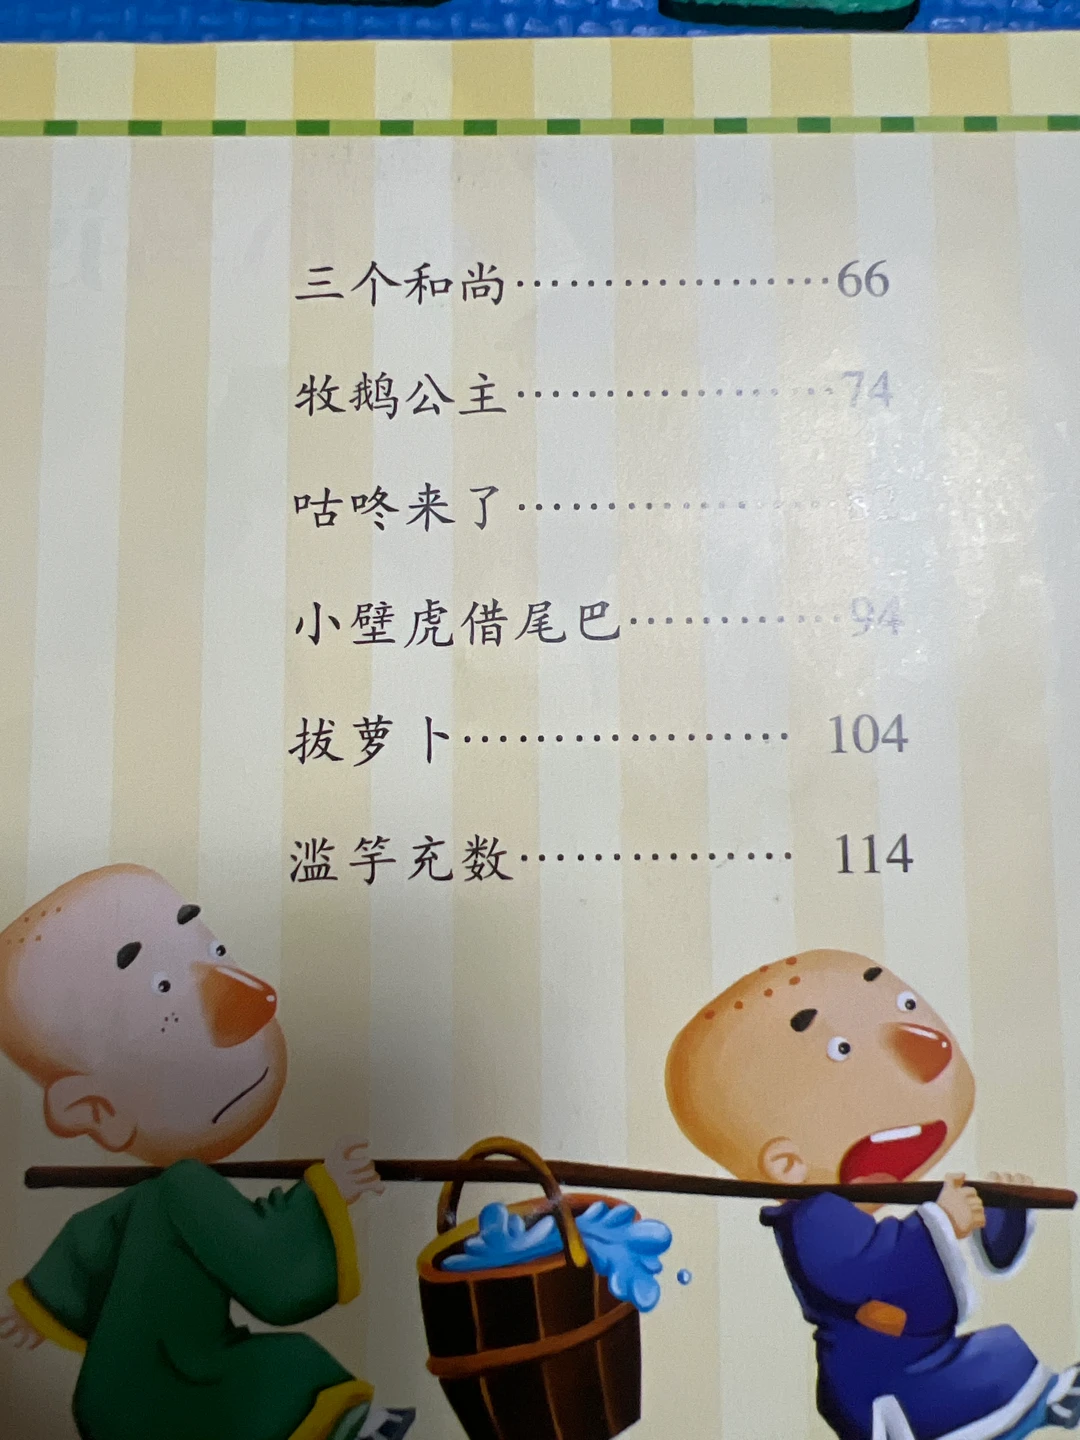 三个和尚………………66
牧鹅公主………………74
咕咚来了………………
小壁虎借尾巴…………94
拔萝卜……………… 104
滥竽充数…………… 114